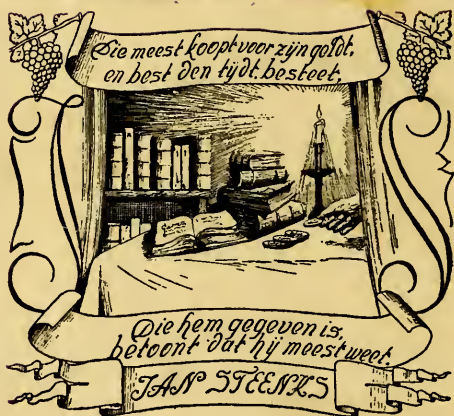 Die meest koopt voor zijn goldt,
en best den tijdt besteet,
Die hem gegeven is,
betoont dat hij meest weet.
JAN STEENKS